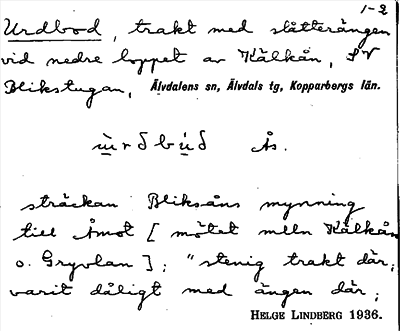 1-2
Urdbod, trakt med slåtterängen
vid nedre loppet av Kälkån, SV
Blikstugan, Älvdalens sn, Älvdals tg, Kopparbergs län.
Ås.
sträckan Bliksåns mynning
till Åmot [ mötet mlln Kälkån
o. Gryvlan ]; "stenig trakt där;
varit dåligt med ängen där;
HELGE LINDBERG 1936.